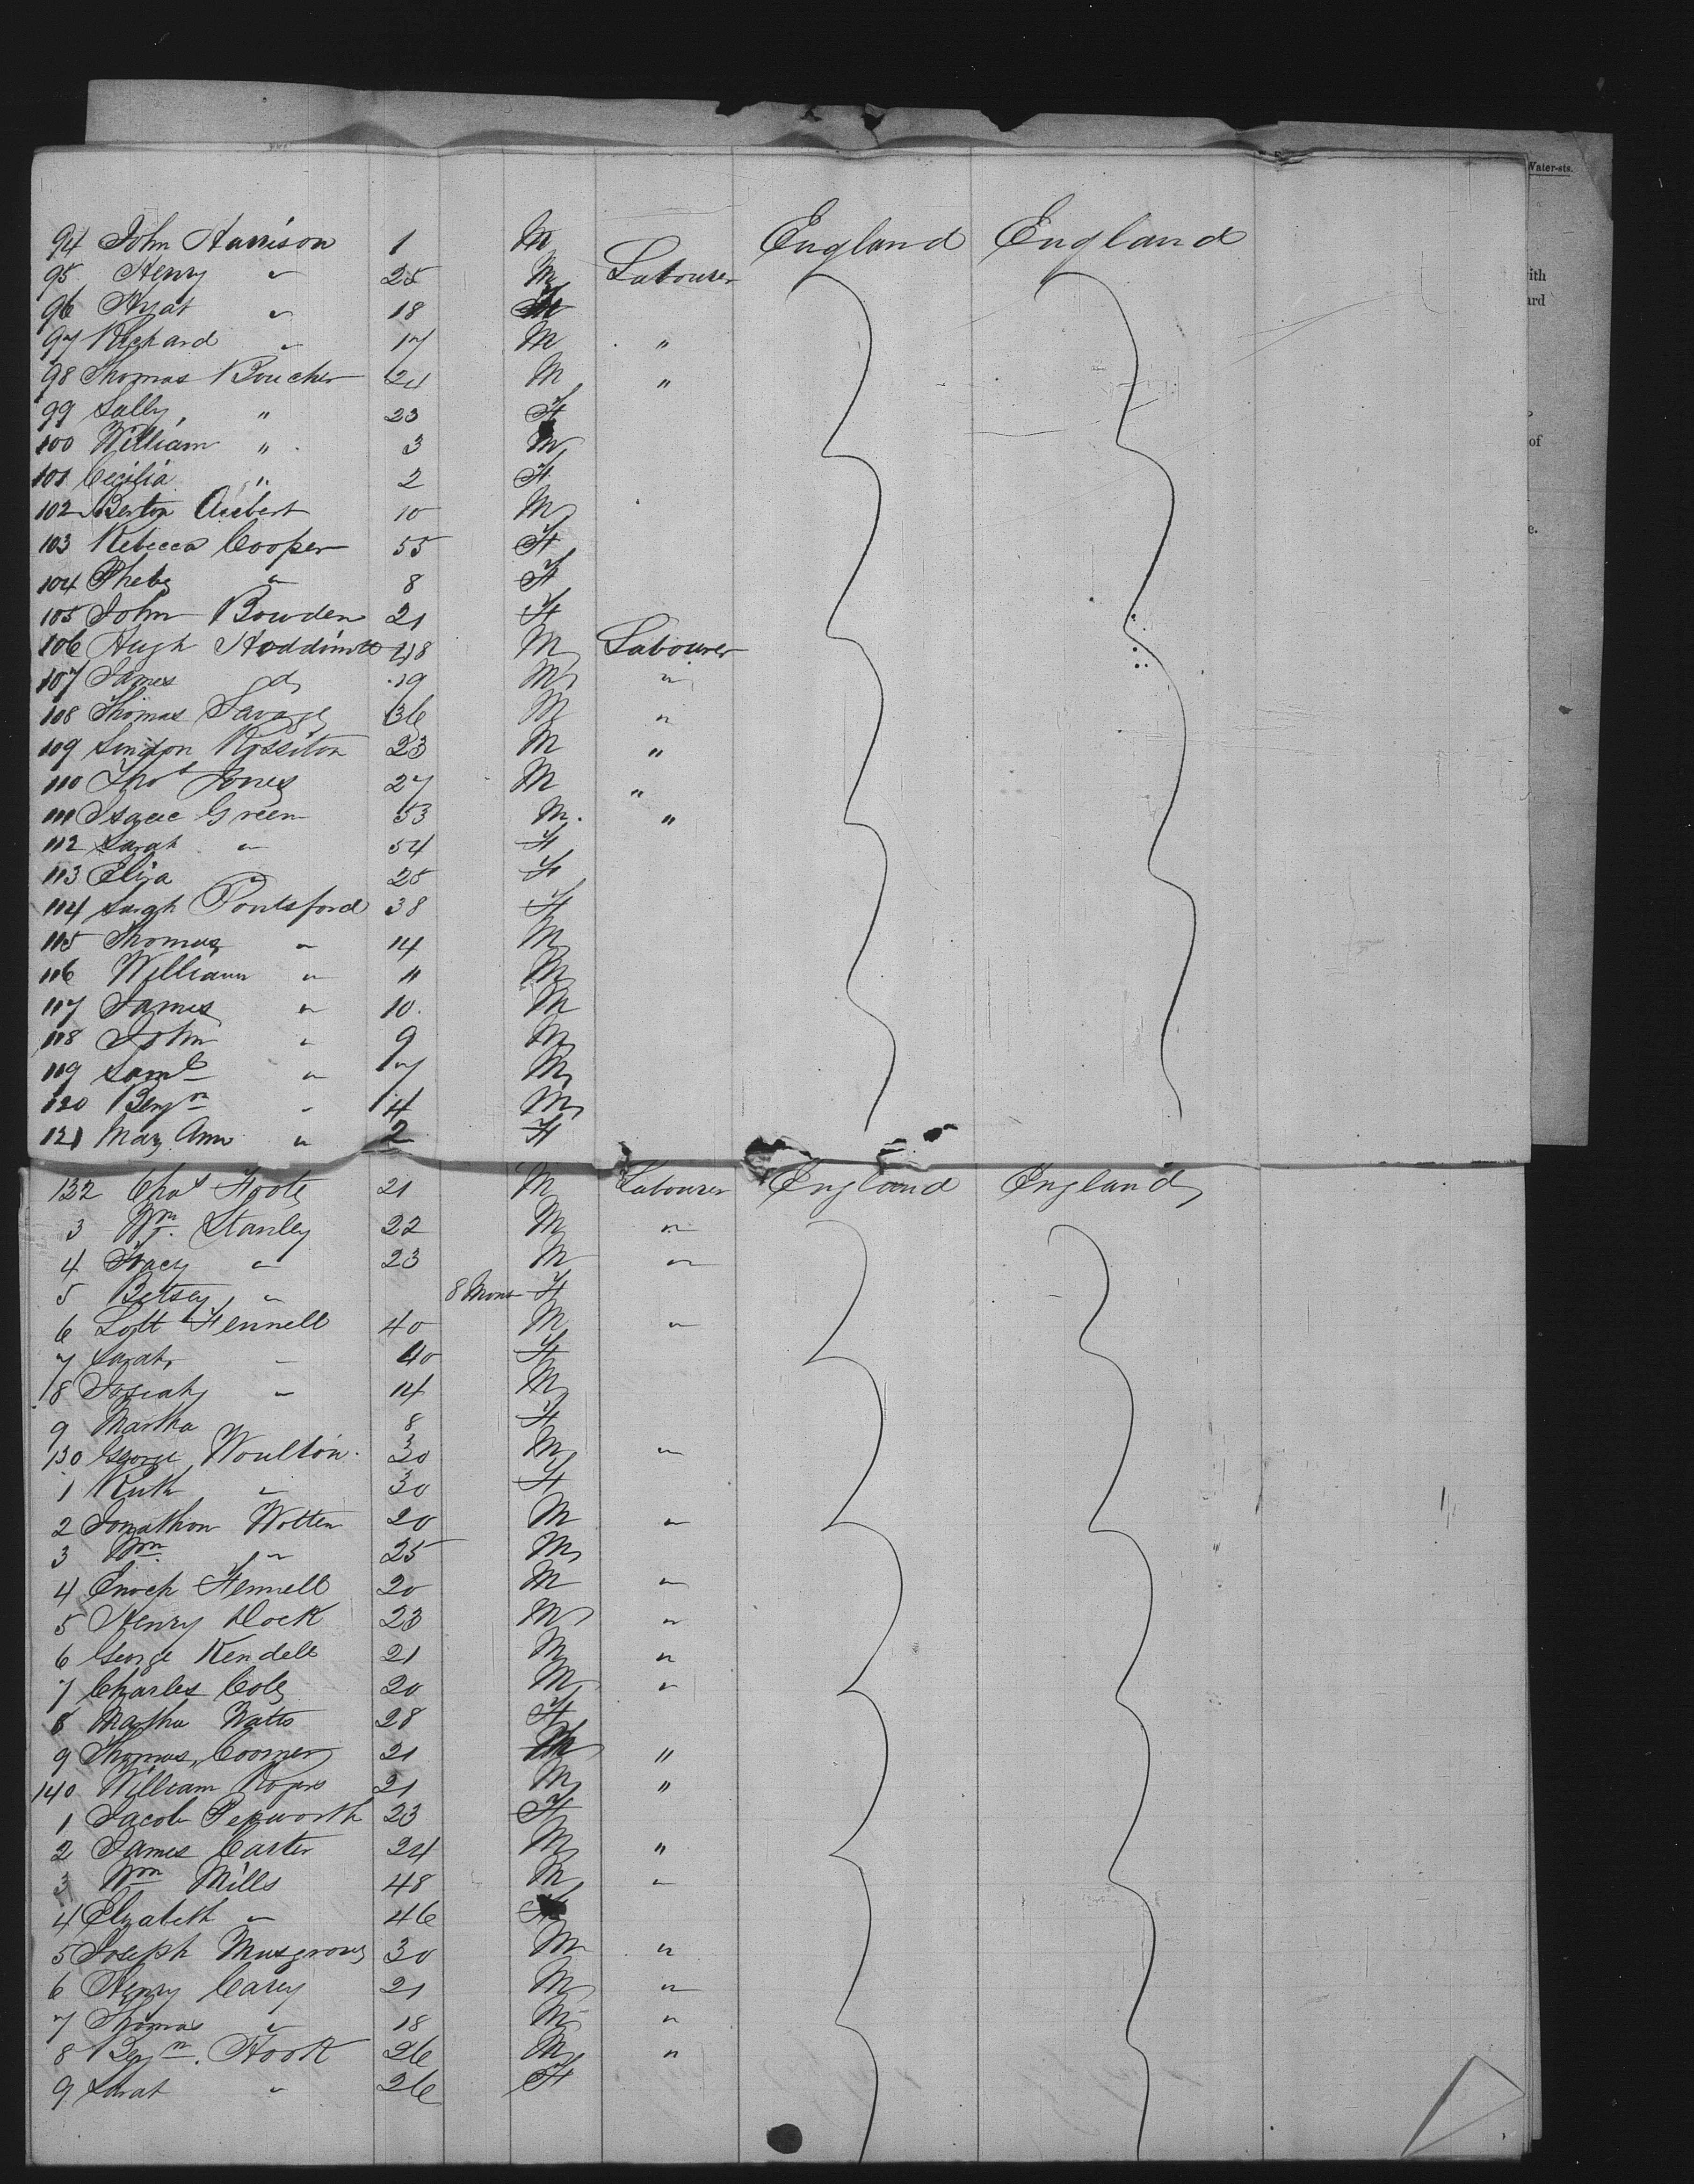 Water-sts.
ith
ard
of
e.
94 John Harrison 1 M England England
95 Henry " 25 M Labourer
96 " 18
97 Richard " 17 M "
98 Thomas Boucher 24 M "
99 Sally " 23 F
100 William " 3 M
101 Cecilia " 2 F
102 Berton Aubert 10 M
103 Rebecca Cooper 55 F
104 Phebe " 8 F
105 John Bowden 21 F
106 Hugh 48 M Labourer
107 James do 19 M "
108 Thomas Savage 36 M "
109 Rossiton 23 M "
110 Thos Jones 27 M "
111 Isaac Green 53 M. "
112 Sarah " 54 F
113 Eliza " 25 F
114 Sarah Pontsford 38 F
115 Thomas " 14 M
116 William " 11 M
117 James " 10. M
118 John " 9 M
119 Saml " 7 M
120 Benjn " 4 M
121 Mary Ann " 2 F
122 Chas Foote 21 M Labourer England England
3 Wm. Stanley 22 M "
4 Tracy " 23 M "
5 Betsey " 8 Mons F
6 Lott Fennell 40 M "
7 Sarah " 40 F
8 Josiah " 14 M
9 Martha 8 F
130 George Woulton. 30 M "
1 Ruth " 30 F
2 Jonathon Wotten 20 M "
3 Wm. " 25 M
4 Enoch Fennell 20 M "
5 Henry Dock 23 M "
6 George Kendell 21 M "
7 Charles Cole 20 M "
8 Martha Watts 28 F
9 Thomas Coomer 21 M "
140 William Rogers 21 M "
1 Jacob Pepworth 23 F
2 James Carter 24 M "
3 Wm Mills 48 M "
4 Elizabeth " 46 F
5 Joseph Musgrove 30 M "
6 Henry Carey 21 M "
7 Thomas " 18 M "
8 Benjn. Hook 26 M "
9 Sarah " 26 F